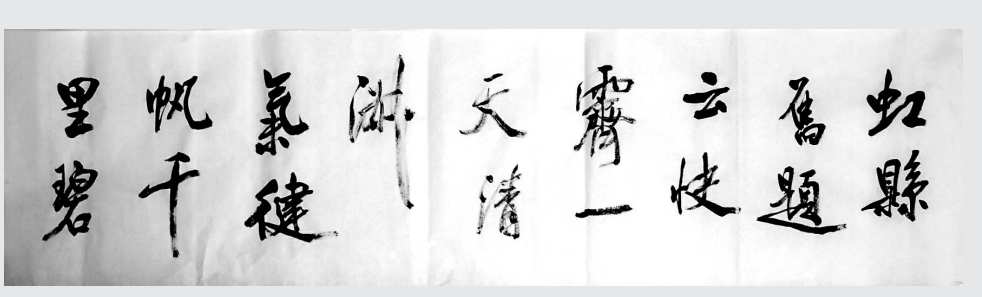 虹縣
舊題
云快
霽一
天清
淑
氣健
帆千
里碧